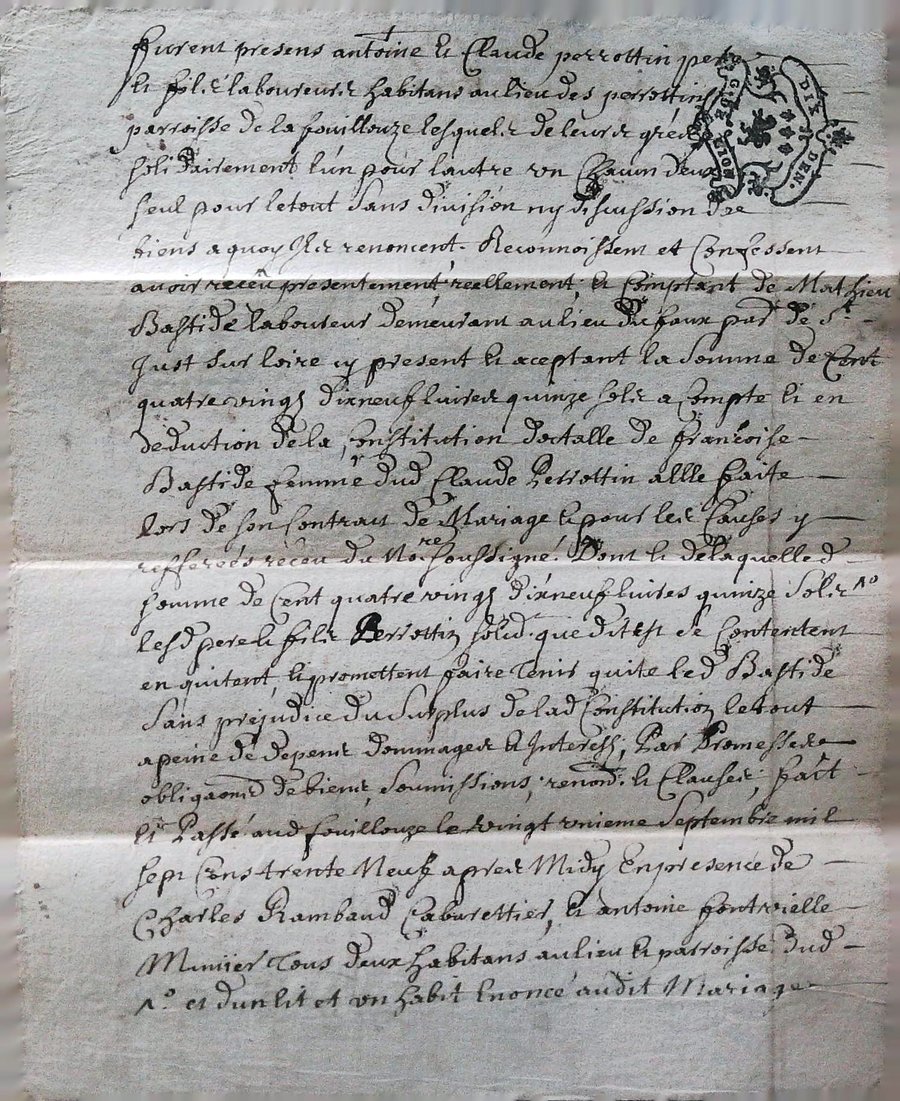 furent presens antoine et Claude perrottin pere
et fils laboureurs habitans au lieu des perrottins
parroisse de la fouillouze lesquels de leurs grés
solidairement lun pour lautre un Chacun deux
seul pour letout Sans division ny discussion de
biens a quoy Ils renoncent. Reconnoissent et Confessent
avoir recêu presentement, reellement, et Comptant de Mathieu
Bastide laboureur demeurant au lieu du faux par de St
Just sur loire cy present et aceptant la Somme de Cent
quatre vingt dixneuf livres quinze sols a Compte et en
deduction de la Constitution dotalle de françoise
Bastide femme dud Claude Perrottin allle faite
lors de son Contrat de Mariage et pour les Causes y
refferées receu du Nore soussigné. Dont et de laquelle d
somme de Cent quatre vingt dixneuf livres quinze Sols No
lesd pere et fils Perrottin solid. que dit est se Contentent
en quitent, et promettent faire Tenir quite led Bastide
Sans préjudice du Surplus de lad Constitution le tout
a peine de depens dommages et Interests, Par Promesses
obligaons de biens, Soumissions, renond. et Clauses, fait
et Passé aud fouillouze le vingt unieme Septembre mil
sept Cens trente Neuf apres Midy En presence de
Charles Rambaud Cabarettier, et antoine fontvielle
Munier Tous deux habitans au lieu et parroisse dud
No et dun lit et un habit Enoncé audit Mariage
DIX DEN.